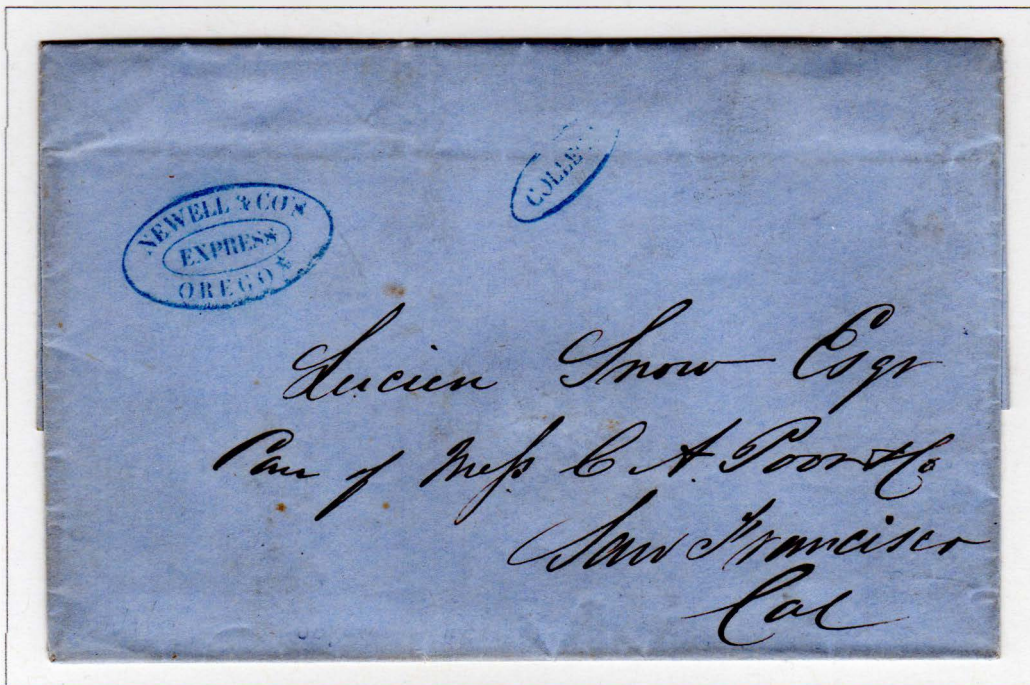 NEWELL & CO'S
EXPRESS
OREGON
COLLECT
Lucien Snow Esqr
Care of Mess C A. Poor & Co
San Francisco
Cal